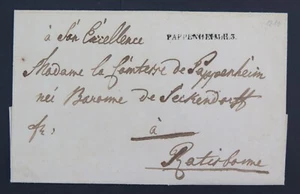 à Son Excellence
PAPPENHEIM R.3.
Madame la Comtesse de Pappenheim
née Baronne de Seckendorff
fr:
à
Ratisbonne